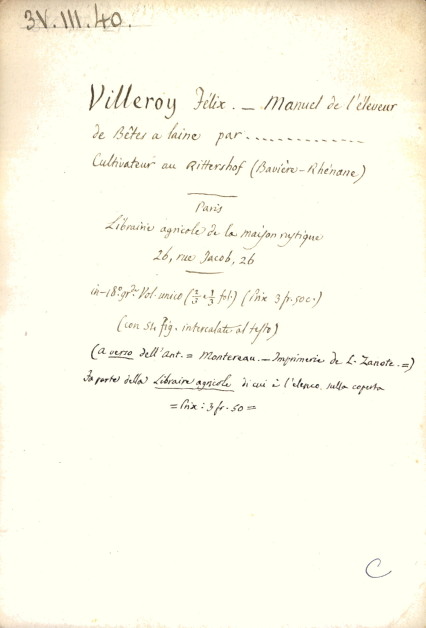 3V.III.40.
Villeroy Félix. — Manuel de l'éleveur
de Bêtes a laine par ..............
Cultivateur au Rittershof (Bavière-Rhénane)
Paris
Librairie agricole de la maison rustique
26, rue Jacob, 26
in-18° gr.de Vol. unico ( fol.) (Prix 3 fr. 50 c.)
(con 54 fig. intercalate al testo)
(a verso dell'Ant. = Montereau. — Imprimerie de L. Zanote. =)
Fa parte della Libraire agricole di cui è l'elenco sulla coperta
= Prix : 3 fr. 50 =
C